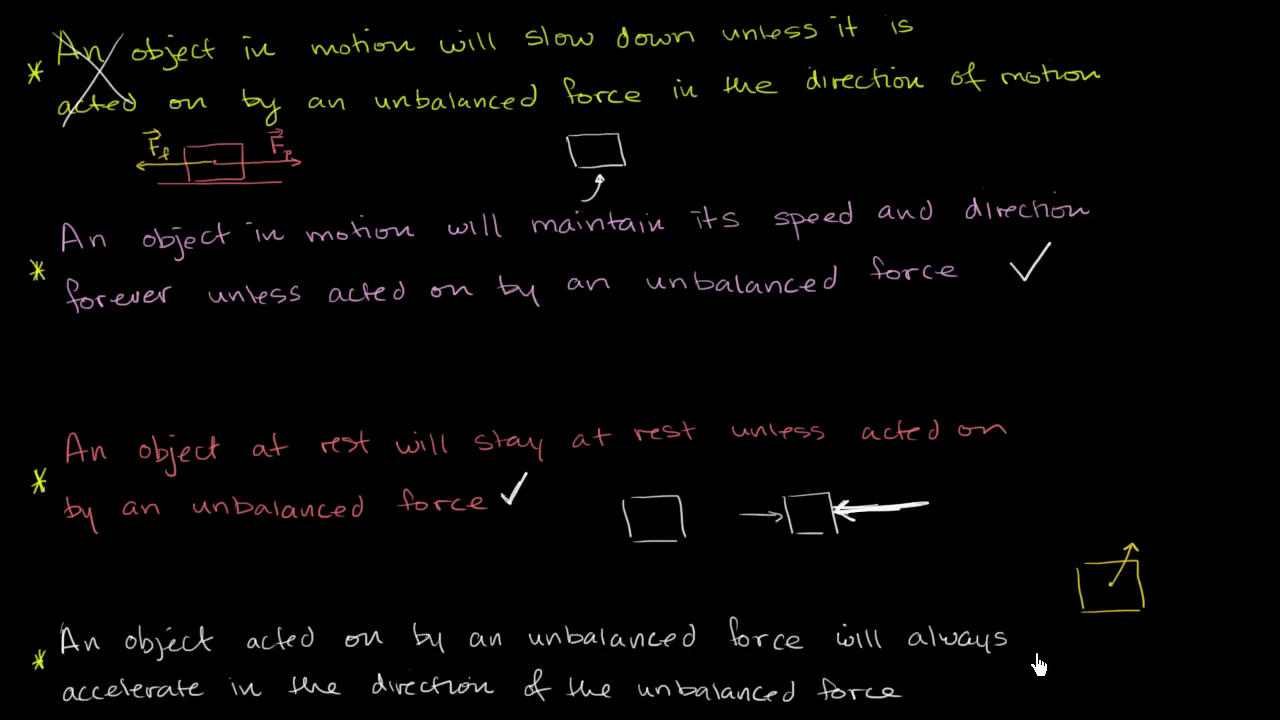 * An object in motion will slow down unless it is
acted on by an unbalanced force in the direction of motion
F_f F_p
An object in motion will maintain its speed and direction
* forever unless acted on by an unbalanced force
An object at rest will stay at rest unless acted on
* by an unbalanced force
An object acted on by an unbalanced force will always
* accelerate in the direction of the unbalanced force